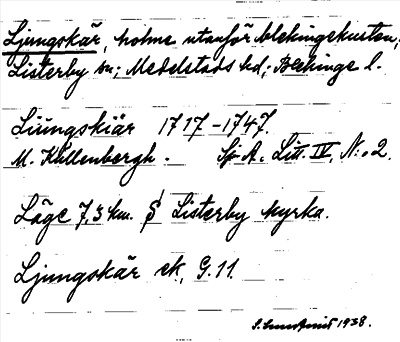 Ljungskär, holme utanför Blekingekusten;
Listerby sn; Medelstads hd; Blekinge l.
Liüngskiär 1717-1747.
M. Källenbergh. Sjö A. Litt. IV, N:o 2.
Läge 7,3 km. S Listerby kyrka.
Ljungskär ek. G.11.
S. Sundqvist 1938.